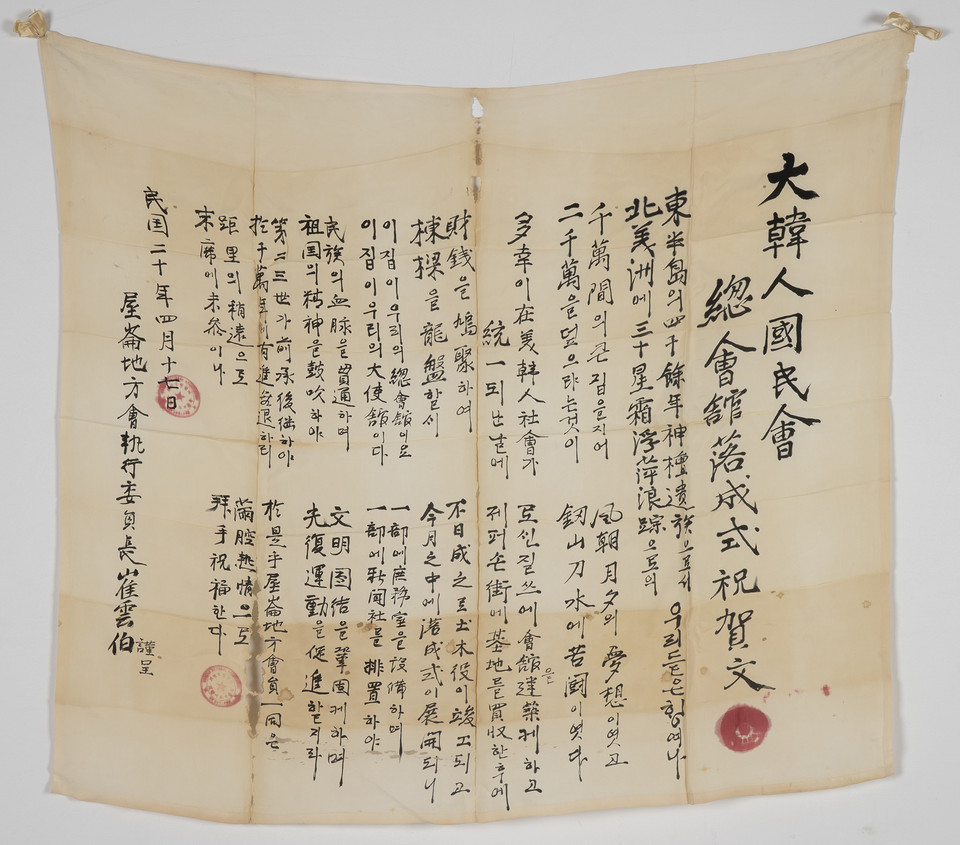 大韓人國民會
總會舘落成式祝賀文
東半島의四千餘年神檀遺族으로서 우리든은힝여나
北美洲에三十星霜浮萍浪踪으로의
千萬間의큰집을지어 風朝月夕의夢想이엿고
二千萬을덮으랴는것이 釼山刀水에苦鬪이엿다
多幸이在美韓人社會가 로신질쓰에會舘을建築케하고
統一되난날에 제퍼손街에基地를買収한후에
財錢을鳩聚하여 不日成之로土木役이竣工되고
棟樑을龍盤할식 今月之中에落成式이展開되니
이집이우리의總會舘이요 一部에庶務室을設備하며
이집이우리의大使舘이다 一部에新聞社를排置하야
民族의血脉을貫通하며 文明團結을鞏固케하며
祖国의精神을鼓吹하야 光復運動을促進할지라
第二三世가前承後継하야 於是乎屋崙地方會員一同은
於千萬年에有進無退하리
距里의稍遠으로 滿腔熱情으로
末席에未參이나 拜手祝福한다
民国二十年四月十七日
屋崙地方會執行委員長崔雲伯 謹呈